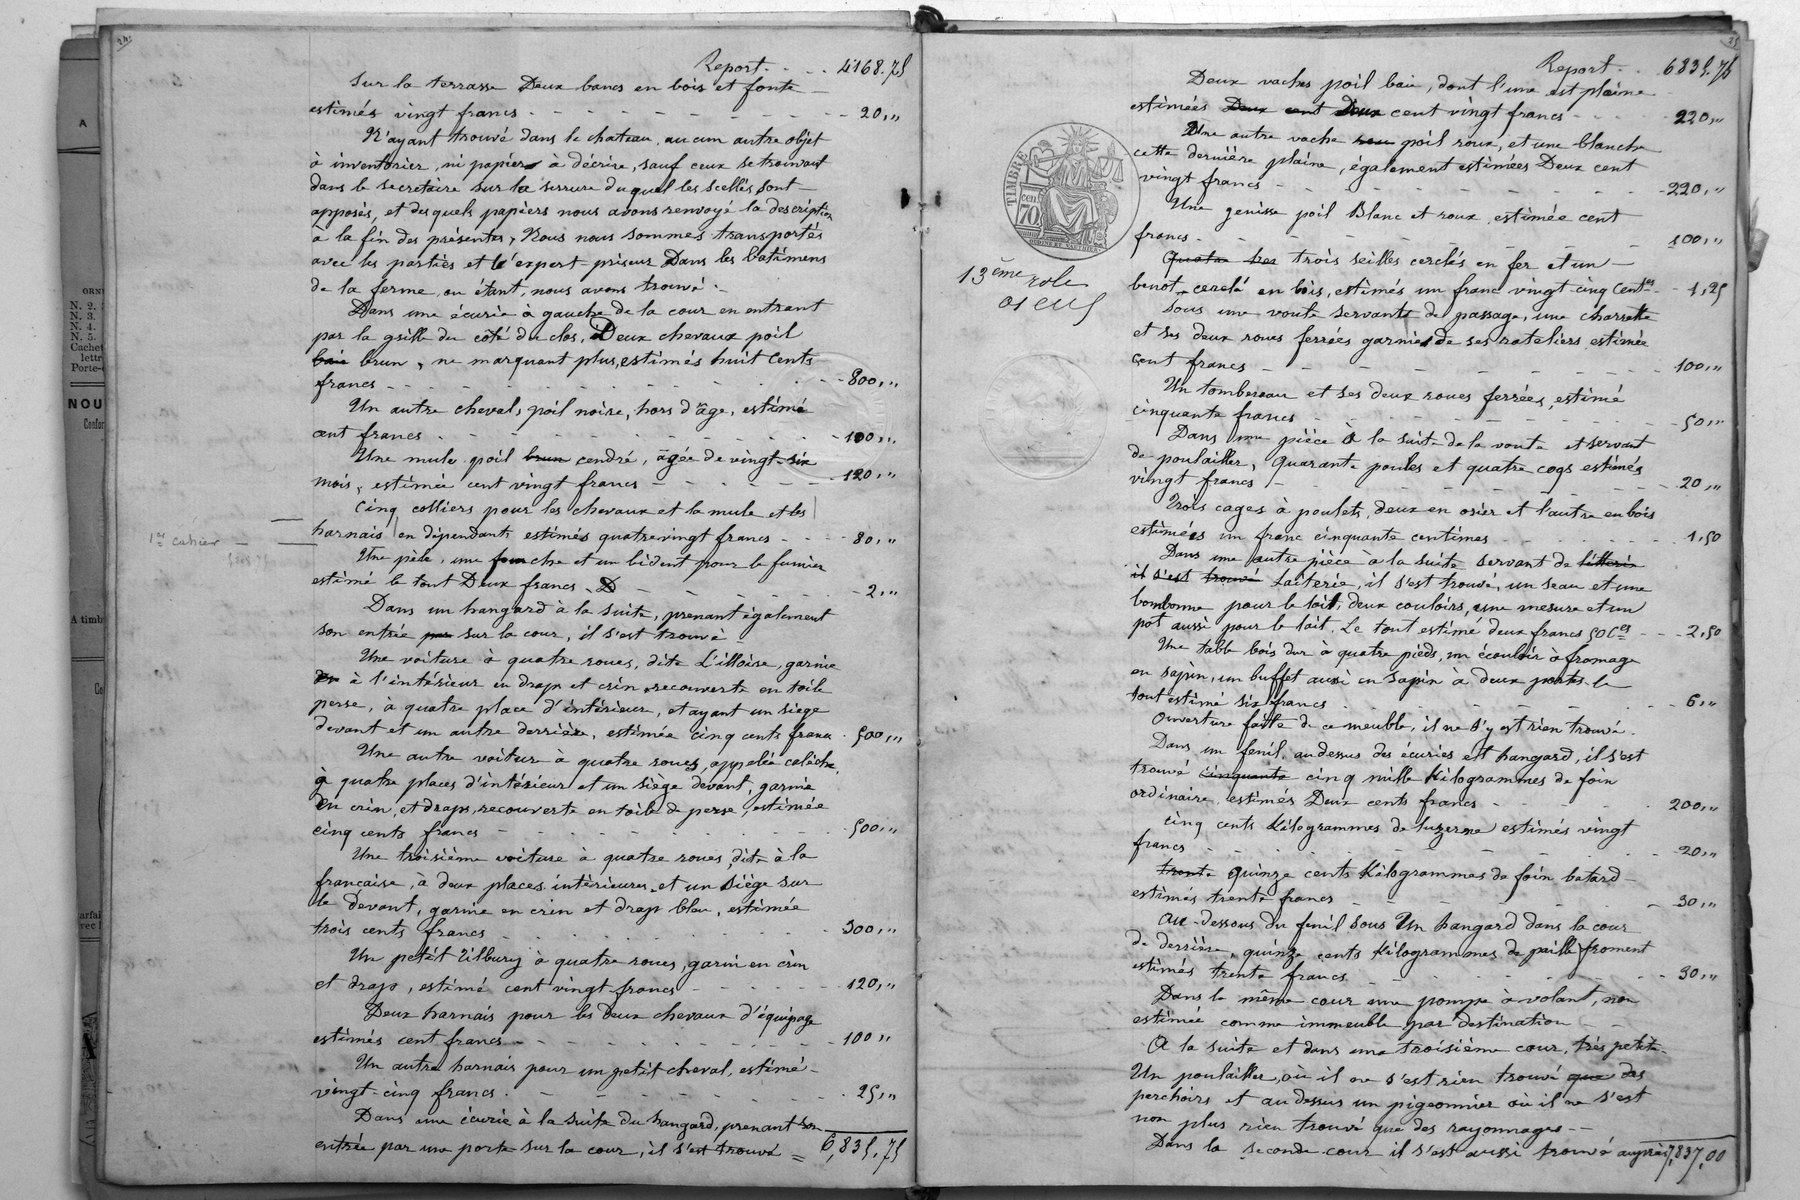 24
Report . . . . 4168.75
Sur la terrasse Deux bancs en bois et fonte
estimés vingt francs 20,,
N'ayant trouvé dans le chateau aucun autre objet
à inventorier, ni papiers à décrire, sauf ceux se trouvant
dans le secretaire sur la serrure duquel les scellés sont
apposés, et desquels papiers nous avons renvoyé la description
à la fin des présentes, Nous nous sommes transportés
avec les parties et l'expert-priseur Dans les batimens
de la ferme, ou étant, nous avons trouvé :
Dans une écurie à gauche de la cour en entrant
par la grille du côté du clos, Deux chevaux poil
baie brun, ne marquant plus, estimés huit cents
francs 800,,
Un autre cheval, poil noire, hors d'âge, estimé
cent francs 100,,
Une mule poil brun cendré, âgée de vingt-six
mois, estimée cent vingt francs 120,,
Cinq colliers pour les chevaux et la mule et les
1er cahier
harnais en dépendants estimés quatre vingt francs 80,,
Une pèle, une fourche et un bident pour le fumier
estimé le tout Deux francs 2,,
Dans un hangard à la suite, prenant également
son entrée par sur la cour, il s'est trouvé
Une voiture à quatre roues, dite L'illoise, garnie
à l'intérieur en drap et crin recouverte en toile
perse, à quatre place d'intérieur, et ayant un siege
devant et un autre derrière, estimée cinq cents francs 500,,
Une autre voiture à quatre roues, appelée calèche,
à quatre places d'intérieur et un siège devant, garnie
en crin, et drap, recouverte en toile de perse, estimée
cinq cents francs 500,,
Une troisième voiture à quatre roues dite à la
française, à deux places intérieures et un siége sur
le devant, garnie en crin et drap bleu, estimée
trois cents francs 300,,
Un petit Tilbury à quatre roues, garni en crin
et drap, estimé cent vingt francs 120,,
Deux harnais pour les deux chevaux d'équipage
estimés cent francs 100,,
Un autre harnais pour un petit cheval, estimé
vingt-cinq francs 25,,
Dans une écurie à la suite du hangard, prenant son
entrée par une porte sur la cour, il s'est trouvé = 6,835.75
25
Report . . 6835.75
Deux vaches poil baie, dont l'une est plaine
estimées Deux cent Deux cent vingt francs 220,,
Une autre vache poil roux, et une blanche
cette dernière plaine, également estimées Deux cent
vingt francs 220,,
Une genisse poil Blanc et roux, estimée cent
francs 100,,
Quatre trois seilles cerclés en fer et un
benot cerclé en bois, estimés un franc vingt cinq Centes 1,25
Sous une voute servante de passage, une charrette
et ses deux roues ferrées garnies de ses rateliers estimée
cent francs 100,,
Un tombereau et ses deux roues ferrées, estimé
cinquante francs 50,,
Dans une pièce à la suite de la voute et servant
de poulailler, Quarante poules et quatre coqs estimés
vingt francs 20,,
Trois cages à poulets, deux en osier et l'autre en bois
estimées un franc cinquante centimes 1,50
Dans une autre pièce à la suite servant de litterie
il s'est trouvé laiterie, il s'est trouvé, un seau et une
bombonne pour le lait, deux couloirs, une mesure et un
pot aussi pour le lait. Le tout estimé deux francs 50 Ces 2,50
Une table bois dur à quatre pieds, un écouloir à fromage
en sapin, un buffet aussi en sapin à deux portes le
tout estimé six francs 6,,
Ouverture faite de ce meuble, il ne s'y est rien trouvé.
Dans un fenil, au dessus des écuries et hangard, il s'est
trouvé cinquante cinq mille Kilogrammes de foin
ordinaire, estimés Deux cents francs 200,,
Cinq cents Kilogrammes de luzerne estimés vingt
francs 20,,
trente quinze cents Kilogrammes de foin batard
estimés trente francs 30,,
Au-dessous du fenil sous Un hangard dans la cour
de derrière, quinze cents Kilogrammes de paille froment
estimés trente francs 30,,
Dans la même cour une pompe à volant, non
estimée comme immeuble par destination
A la suite et dans une troisième cour, très petite
Un poulailler, où il ne s'est rien trouvé que des
perchoirs et au dessus un pigeonnier où il ne s'est
non plus rien trouvé que des rayonnages
Dans la seconde cour il s'est aussi trouvé auprès 7,837,00
TIMBRE
70
cent
13ème role
A
ORNE
N. 2.
N. 3.
N. 4.
N. 5.
Cachet
lettr
Porte-
NOU
Confor
A timb